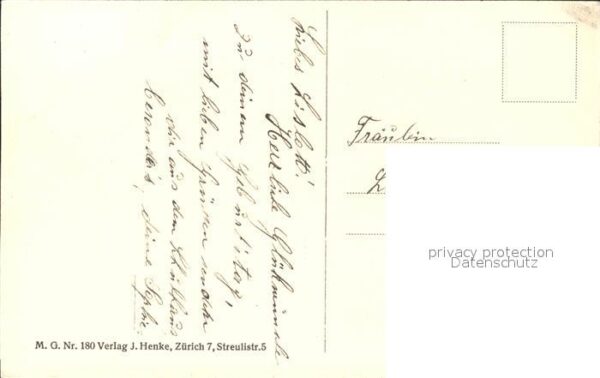 Liebes Lislett!
Herzliche Glückwünsche
zu deinem Geburtstag,
mit lieben Grüssen sendet
dir aus dem Schulhaus
deine Sophie.
Fräulein
L
privacy protection
Datenschutz
M. G. Nr. 180 Verlag J. Henke, Zürich 7, Streulistr. 5